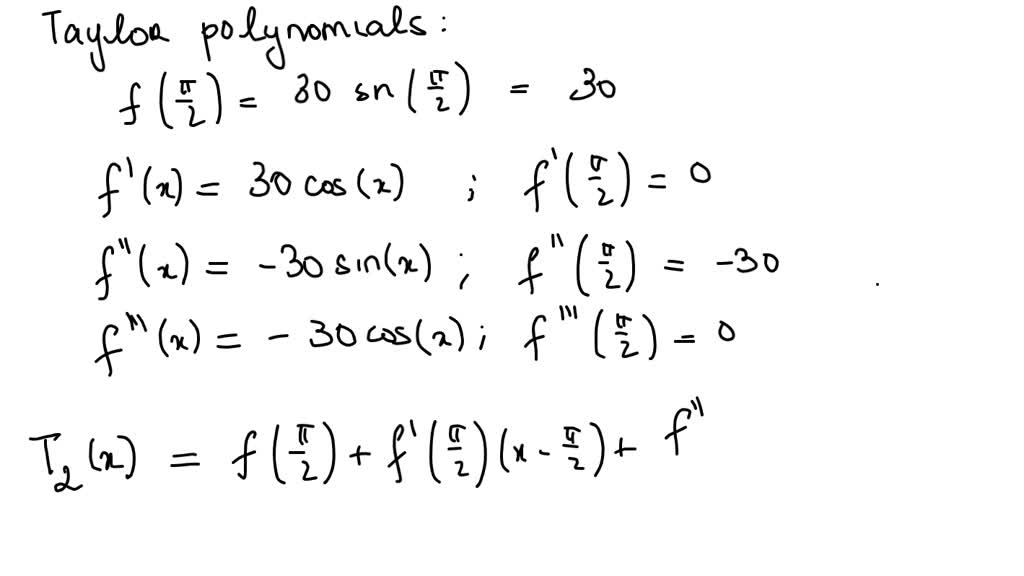 Taylor polynomials:
f(π/2) = 30 sn(π/2) = 30
f'(x) = 30 cos(x) ; f'(π/2) = 0
f''(x) = -30 sin(x) ; f''(π/2) = -30
f'''(x) = - 30 cos(x) ; f'''(π/2) = 0
T₂(x) = f(π/2) + f'(π/2)(x - π/2) + f''